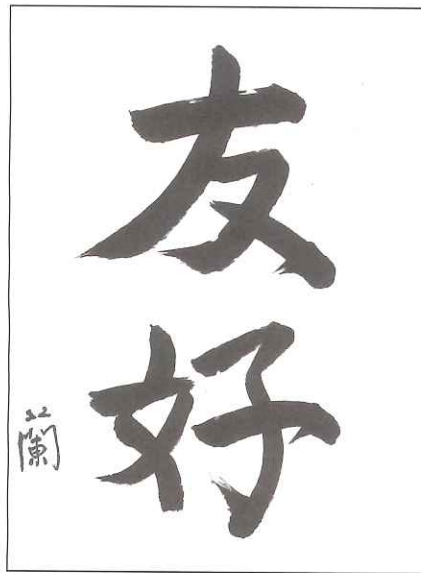 友好
蘭